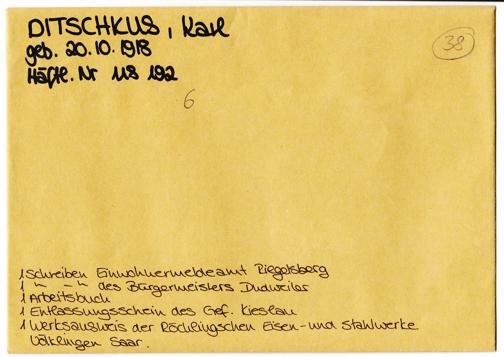 DITSCHKUS, Karl
geb. 20.10.1913
Häftl. Nr 118 192
38
6
1 Schreiben Einwohnermeldeamt Riegelsberg
1 " - " des Bürgermeisters Dudweiler
1 Arbeitsbuch
1 Entlassungsschein des Gef. Kieslau
1 Werksausweis der Röchlingschen Eisen- und Stahlwerke
Völklingen Saar.